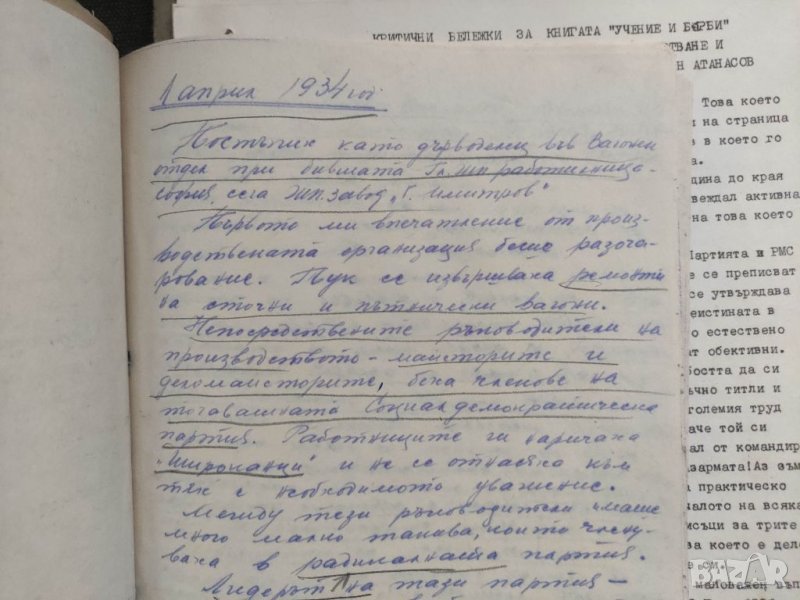 1 април 1934 год
Постъпих като дърводелец във Вагонн
отдел при бившата Гл. жп работилница-
София, сега жп. завод „Г. Димитров"
Първото ми впечатление от произ-
водствената организация беше разоча-
рование. Тук се извършваха ремонти
на сточни и пътнически вагони.
Непосредствените ръководители на
производството - майсторите и
десомайсторите, бяха членове на
тогавашната Социалдемократическа
партия. Работниците ги наричаха
„Широкаци" и не се отнасяха към
тях с необходимото уважение.
Между тези ръководители имаше
много малко такива, които члену-
ваха в радикалната партия.
Лидерът на тази партия -
КРИТИЧНИ БЕЛЕЖКИ ЗА КНИГАТА "УЧЕНИЕ И БОРБИ"
СТВАНЕ И
Н АТАНАСОВ
Това което
и на страница
в в което го
а.
дина до края
веждал активна
на това което
Партията и РМС
е се преписват
се утвърждава
еистината в
о естествено
ат обективни.
бостта да си
ъчно титли и
големия труд
аче той си
ал от командир
азармата!Аз съм
а практическо
малото на всяка
исъци за трите
ва което е дел
е см.
маловажен въп
BAZAR